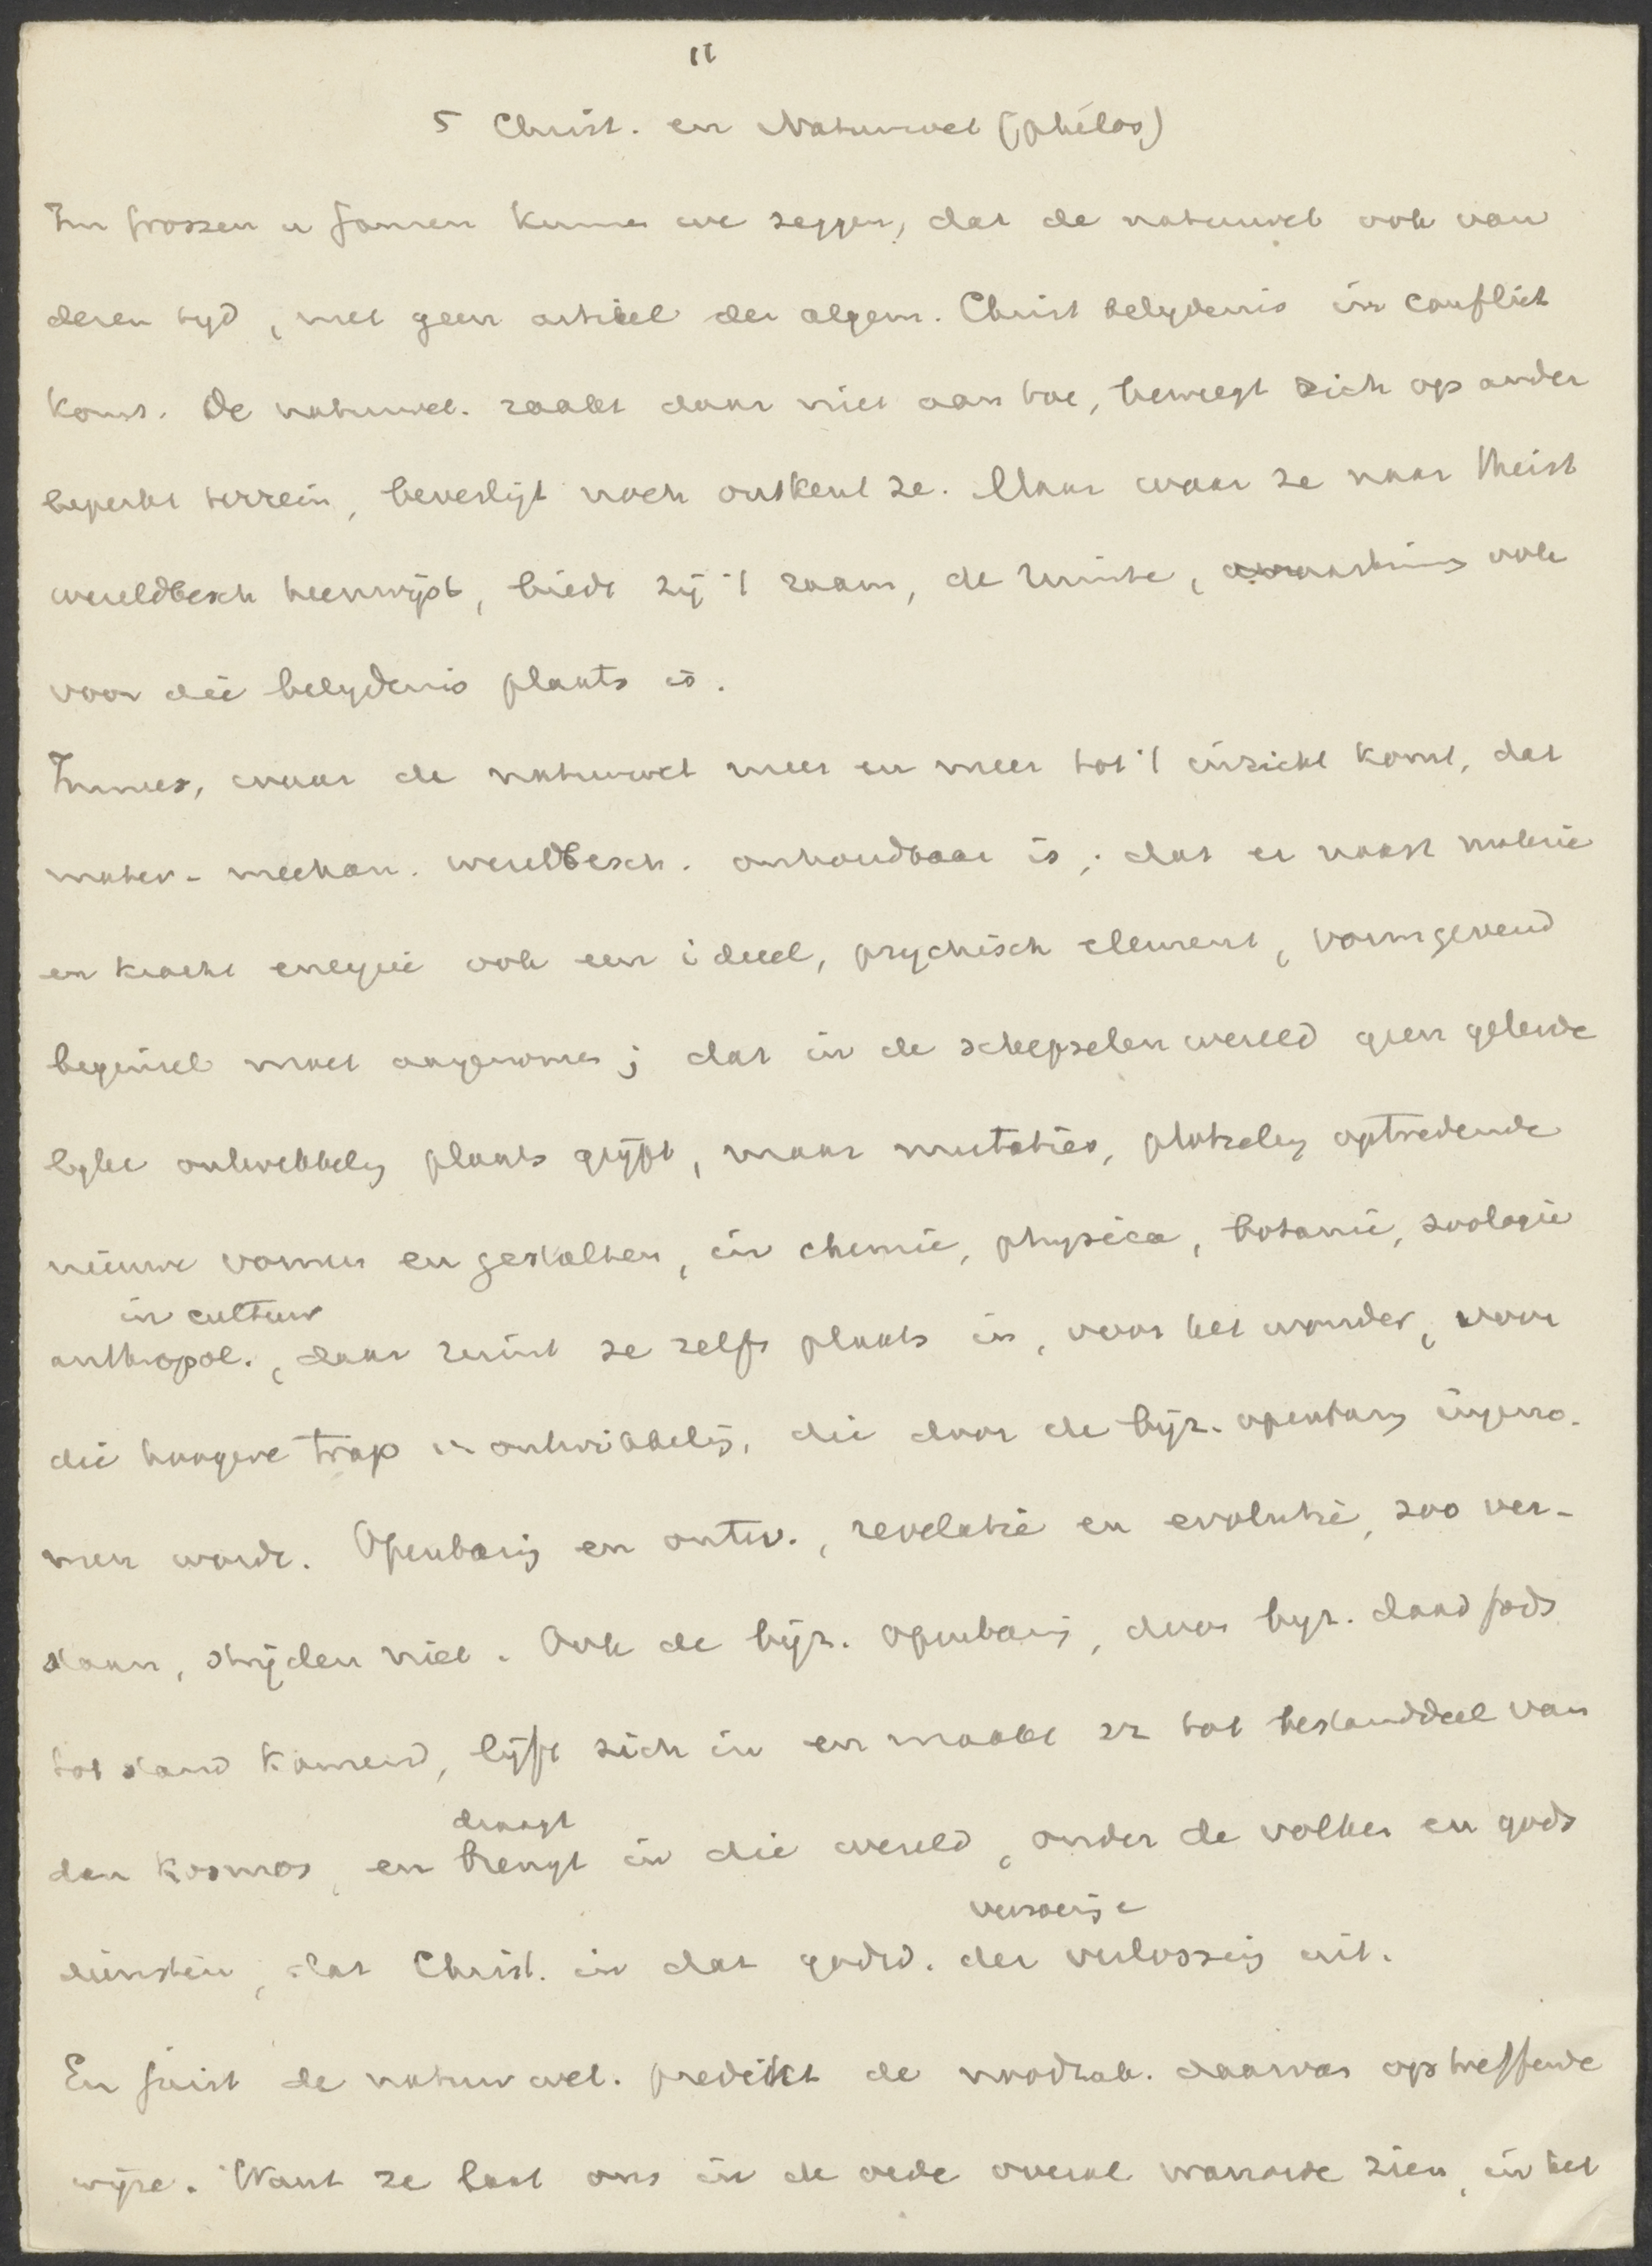 11
5 Christ. en Natuurwet (philos)
Im grossen u Ganzen kunnen we zeggen, dat de natuurwet ook van
dezen tyd, met geen artikel der algem. Christ belydenis in conflict
komt. De natuurwet. raakt daar niet aan toe, beweegt zich op ander
beperkt terrein, bevestigt noch ontkent ze. Maar waar ze naar theist
wereldbesch heenwijst, biedt zij 't raam, de ruimte, waarbinnen ook
voor die belydenis plaats is.
Immers, waar de natuurwet meer en meer tot 't inzicht komt, dat
mater-mechan. wereldbesch. onhoudbaar is; dat er naast materie
en kracht energie ook een ideeel, psychisch element, vormgevend
beginsel moet aangenomen; dat in de schepselen wereld geen geleide
lyke ontwikkeling plaats grijpt, maar mutaties, plotseling optredende
nieuwe vormen en gestalten, in chemie, physica, botanie, zoologie
in cultuur
anthropol., daar ruimt ze zelfs plaats in, voor het wonder, voor
die hoogere trap in ontwikkeling, die door de bijz. openbaring ingeno-
men wordt. Openbaring en ontw., revelatie en evolutie, zoo ver-
staan, strijden niet. Ook de bijz. Openbaring, door byz. daad Gods
tot stand komend, lijft zich in en maakt zz tot bestanddeel van
den kosmos, en brengt in die wereld, onder de volken en gods
draagt
diensten, dat Christ. in dat godsd. der verlossing uit.
verzoening e
En juist de natuurwet. predikt de noodzak. daarvan op treffende
wijze. Want ze laat ons in de orde overal wanorde zien, in het